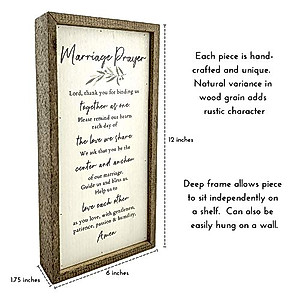 Marriage Prayer
Lord, thank you for binding us
together as one.
Please remind our hearts
each day of
the love we share.
We ask that you be the
center and anchor
of our marriage.
Guide us and bless us.
Help us to
love each other
as you love, with gentleness,
patience, passion & humility,
Amen
1.75 inches
6 inches
12 inches
Each piece is hand-
crafted and unique.
Natural variance in
wood grain adds
rustic character
Deep frame allows piece
to sit independently on
a shelf. Can also be
easily hung on a wall.